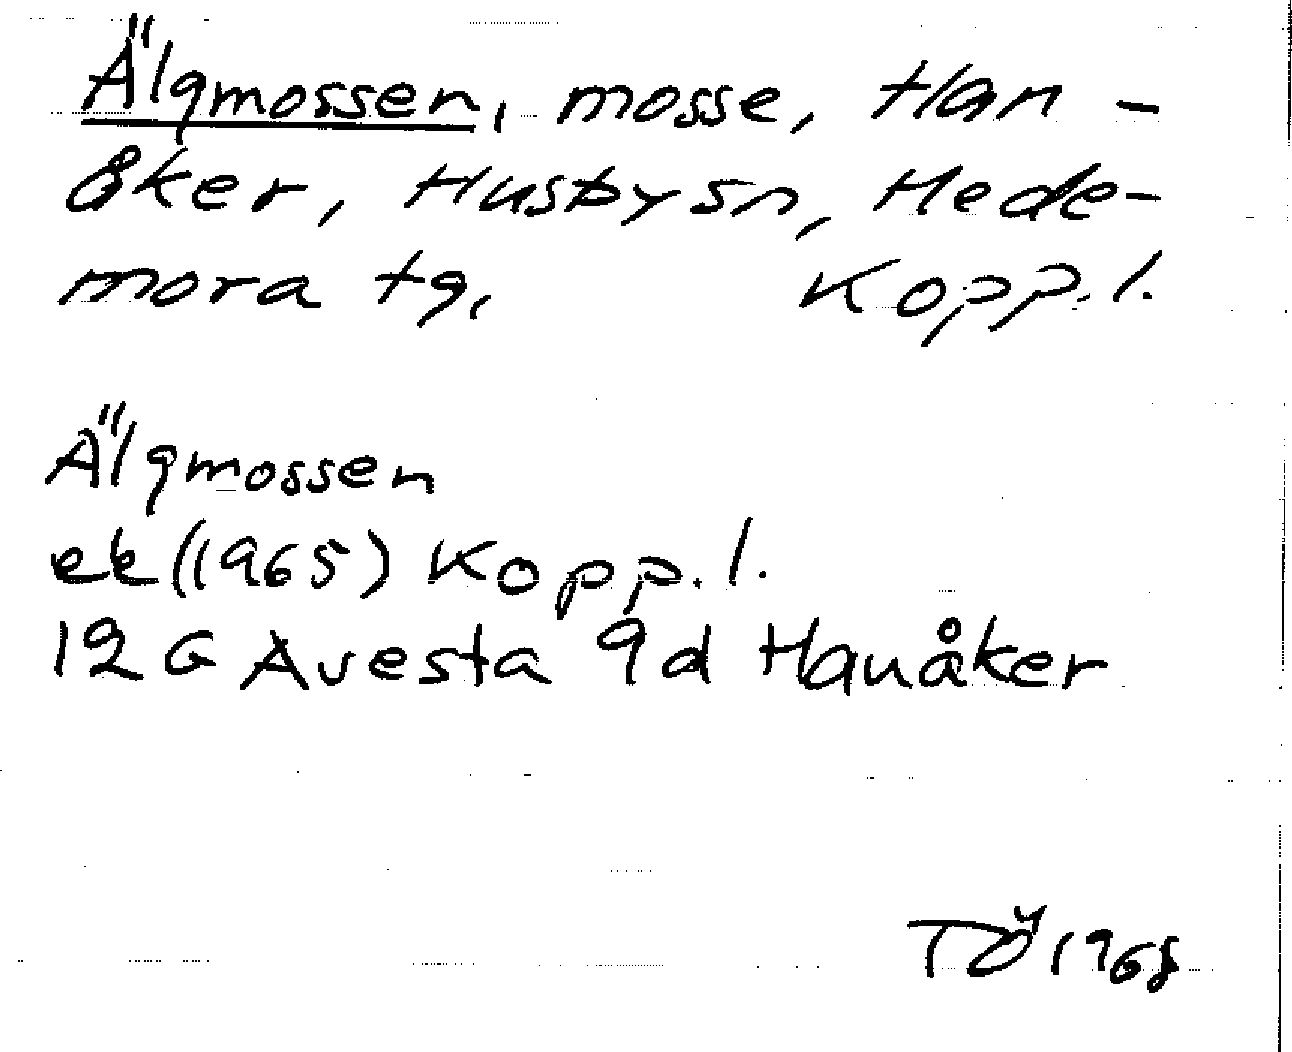 Älgmossen, mosse, Han-
åker, Husby sn, Hede-
mora tg, Kopp. l.
Älgmossen
ek (1965) Kopp. l.
12 G Avesta 9d Hanåker
TÖ 1968